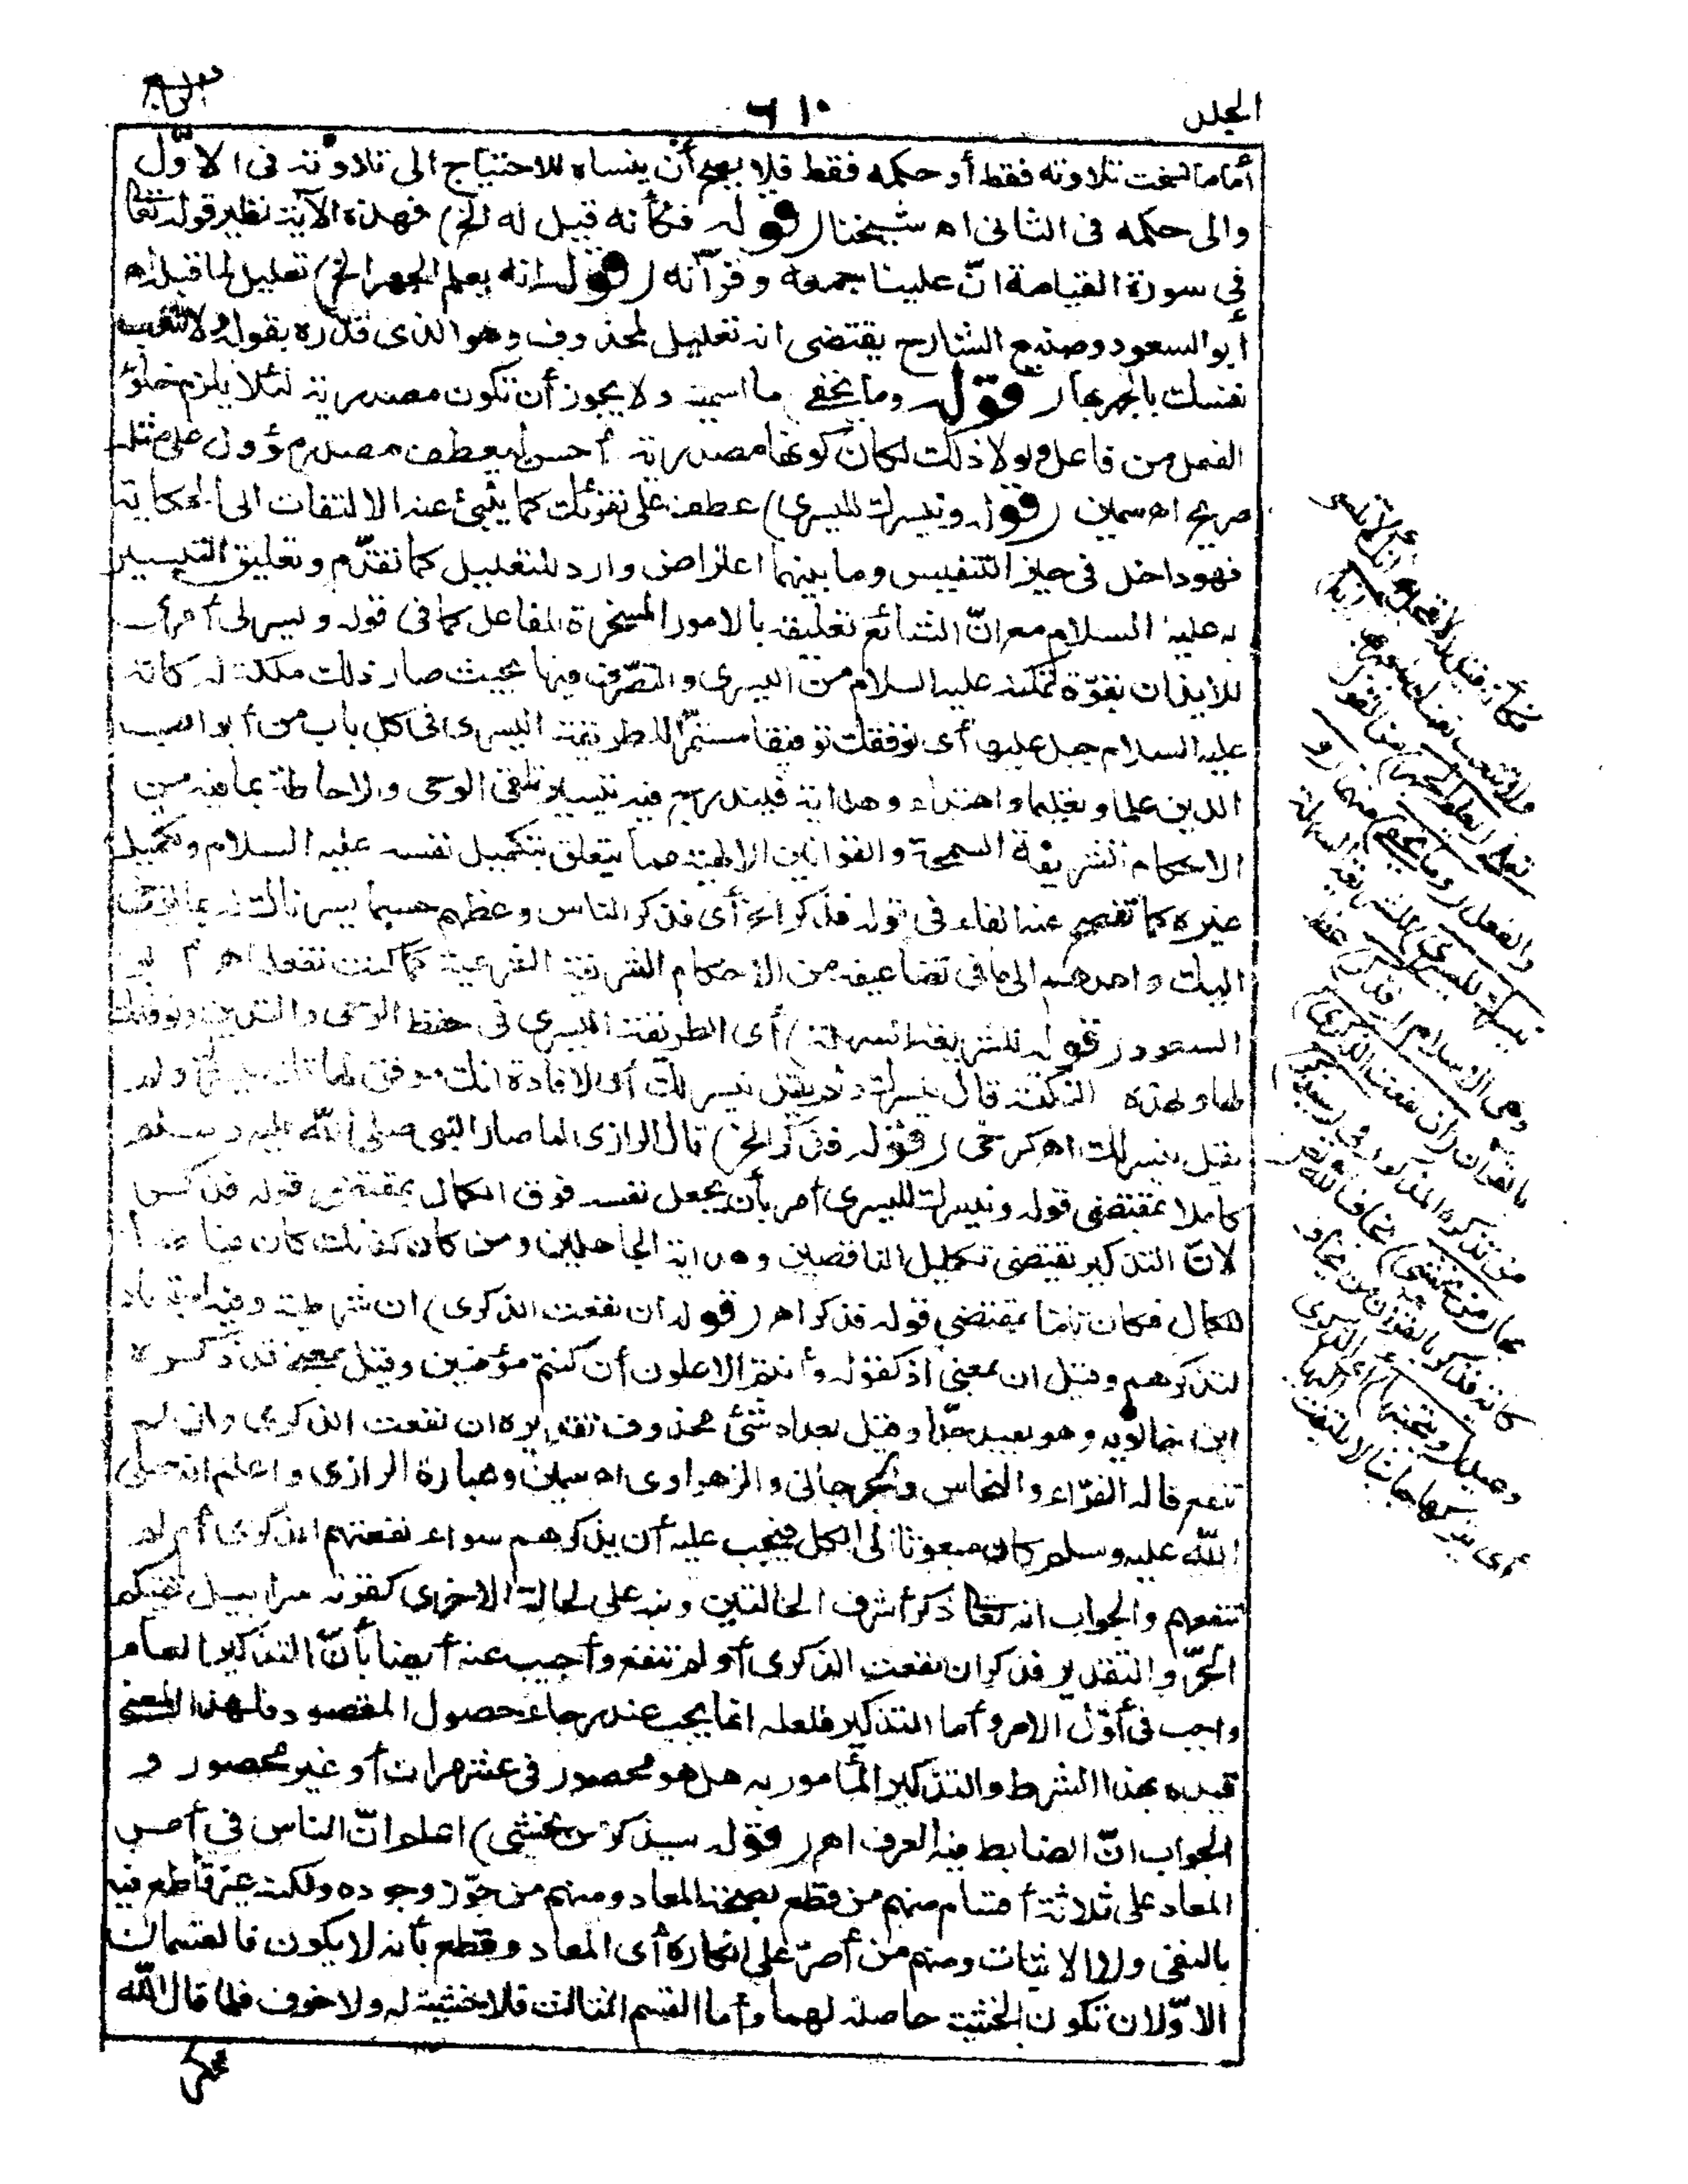 الجلد
٦١٠
الرابع
أما ما نسخت تلاوته فقط أو حكمه فقط فلا يصح أن ينساه للاحتياج الى تلاوته فى الاوّل
والى حكمه فى الثانى اه شيخنا (قوله فكأنه قيل له الخ) فهذه الآية نظير قوله تعالى
في سورة القيامة انّ علينا جمعه وقرآنه (قوله انه يعلم الجهر الخ) تعليل لما قبله اه
أبو السعود وصنيع الشارح يقتضى انه تعليل لمحذوف وهو الذى قدّره بقوله ولا تتعب
نفسك بالجهر بها (قوله وما يخفى) ما اسمية ولا يجوز أن تكون مصدرية لئلا يلزم خلوّ
الفعل من فاعل ولولا ذلك لكان كونها مصدرية أحسن ليعطف مصدر مؤول على مثله
صريح اه سمين (قوله ونيسرك لليسرى) عطف على نقرئك كما ينبئ عنه الالتفات الى الحكاية
فهو داخل فى حيز التنفيس وما بينهما اعتراض وارد للتعليل كما تقدّم وتعليق التيسير
به عليه السلام مع انّ الشائع تعليقه بالامور المسخرة للفاعل كما فى قوله ويسر لى أمرى
للايذان بقوّة تمكنه عليه السلام من اليسرى والتصرّف فيها بحيث صار ذلك ملكة له كانه
عليه السلام جبل عليها أى نوفقك توفيقا مستمرّا للطريقة اليسرى فى كل باب من أبواب
الدين علما وتعليما واهتداء وهداية فيندرج فيه تيسير تلقى الوحى والاحاطة بما فيه من
الاحكام الشريفة السمحة والقوانين الالهية مما يتعلق بتكميل نفسه عليه السلام وتكميل
غيره كما تفصح عنه الفاء فى قوله فذكر الخ أى فذكر الناس وعظهم حسبما يسرناك له بما يوحى
اليك واهدهم الى ما فى تضاعيفه من الاحكام الشريفة الشرعية كما كنت تفعله اه أبو
السعود (قوله للشريعة السهلة) أى الطريقة اليسرى فى حفظ الوحى والتدين ونوفقك
لها ولهذه النكتة قال نيسرك ولم يقل نيسر لك أى لافادة انك موفق لها ولم
يقل نيسر لك اه كرخى (قوله فذكر الخ) قال الرازى لما صار النبى صلى الله عليه وسلم
كاملا بمقتضى قوله ونيسرك لليسرى أمر بأن يجعل نفسه فوق الكمال بمقتضى قوله فذكر
لانّ التذكير يقتضى تكميل الناقصين وهداية الجاهلين ومن كان كذلك كان فياضا
للكمال فكان تامّا بمقتضى قوله فذكر اه (قوله ان نفعت الذكرى) ان شرطية وفيه استبعاد
لتذكرهم وقيل ان بمعنى اذ كقوله وأنتم الاعلون ان كنتم مؤمنين وقيل بمعنى قد ذكره
ابن خالويه وهو بعيد جدّا وقيل بعده شئ محذوف تقديره ان نفعت الذكرى وان لم
تنفع قاله الفرّاء والنحاس والجرجانى والزهراوى اه سمين وعبارة الرازى واعلم انه صلى
الله عليه وسلم كان مبعوثا الى الكل فيجب عليه أن يذكرهم سواء نفعتهم الذكرى أم لم
تنفعهم والجواب انه تعالى ذكر أشرف الحالتين ونبه على الحالة الاخرى كقوله سرابيل تقيكم
الحرّ والتقدير فذكر ان نفعت الذكرى أو لم تنفع وأجيب عنه أيضا بأنّ التذكير العام
واجب فى أوّل الامر وأما التذكير فلعله انما يجب عند رجاء حصول المقصود فلهذا المعنى
قيده بهذا الشرط والتذكير المأمور به هل هو محصور فى عشر مرات أو غير محصور و
الجواب انّ الضابط فيه العرف اه (قوله سيذكر من يخشى) اعلم انّ الناس في أمر
المعاد على ثلاثة أقسام منهم من قطع بصحة المعاد ومنهم من جوّز وجوده ولكنه غير قاطع فيه
بالنفى ولا الاثبات ومنهم من أصرّ على انكاره أى المعاد وقطع بأنه لا يكون فالقسمان
الاوّلان تكون الخشية حاصلة لهما وأما القسم الثالث فلا خشية له ولا خوف فلما قال الله
فكانه قيل له
ولا تتعب نفسك
والفعل (وما يخفى) منهما (و
نيسرك لليسرى) للشريعة السهلة
وهى الاسلام (فذكر) عظ
بالقرآن (ان نفعت الذكرى)
من تذكره المذكور فى سيذكر
بها (من يخشى) يخاف الله تعالى
كآية فذكر بالقرآن من يخاف
وعيد (ويتجنبها) أى الذكرى
أى يتركها جانبا لا يلتفت اليها